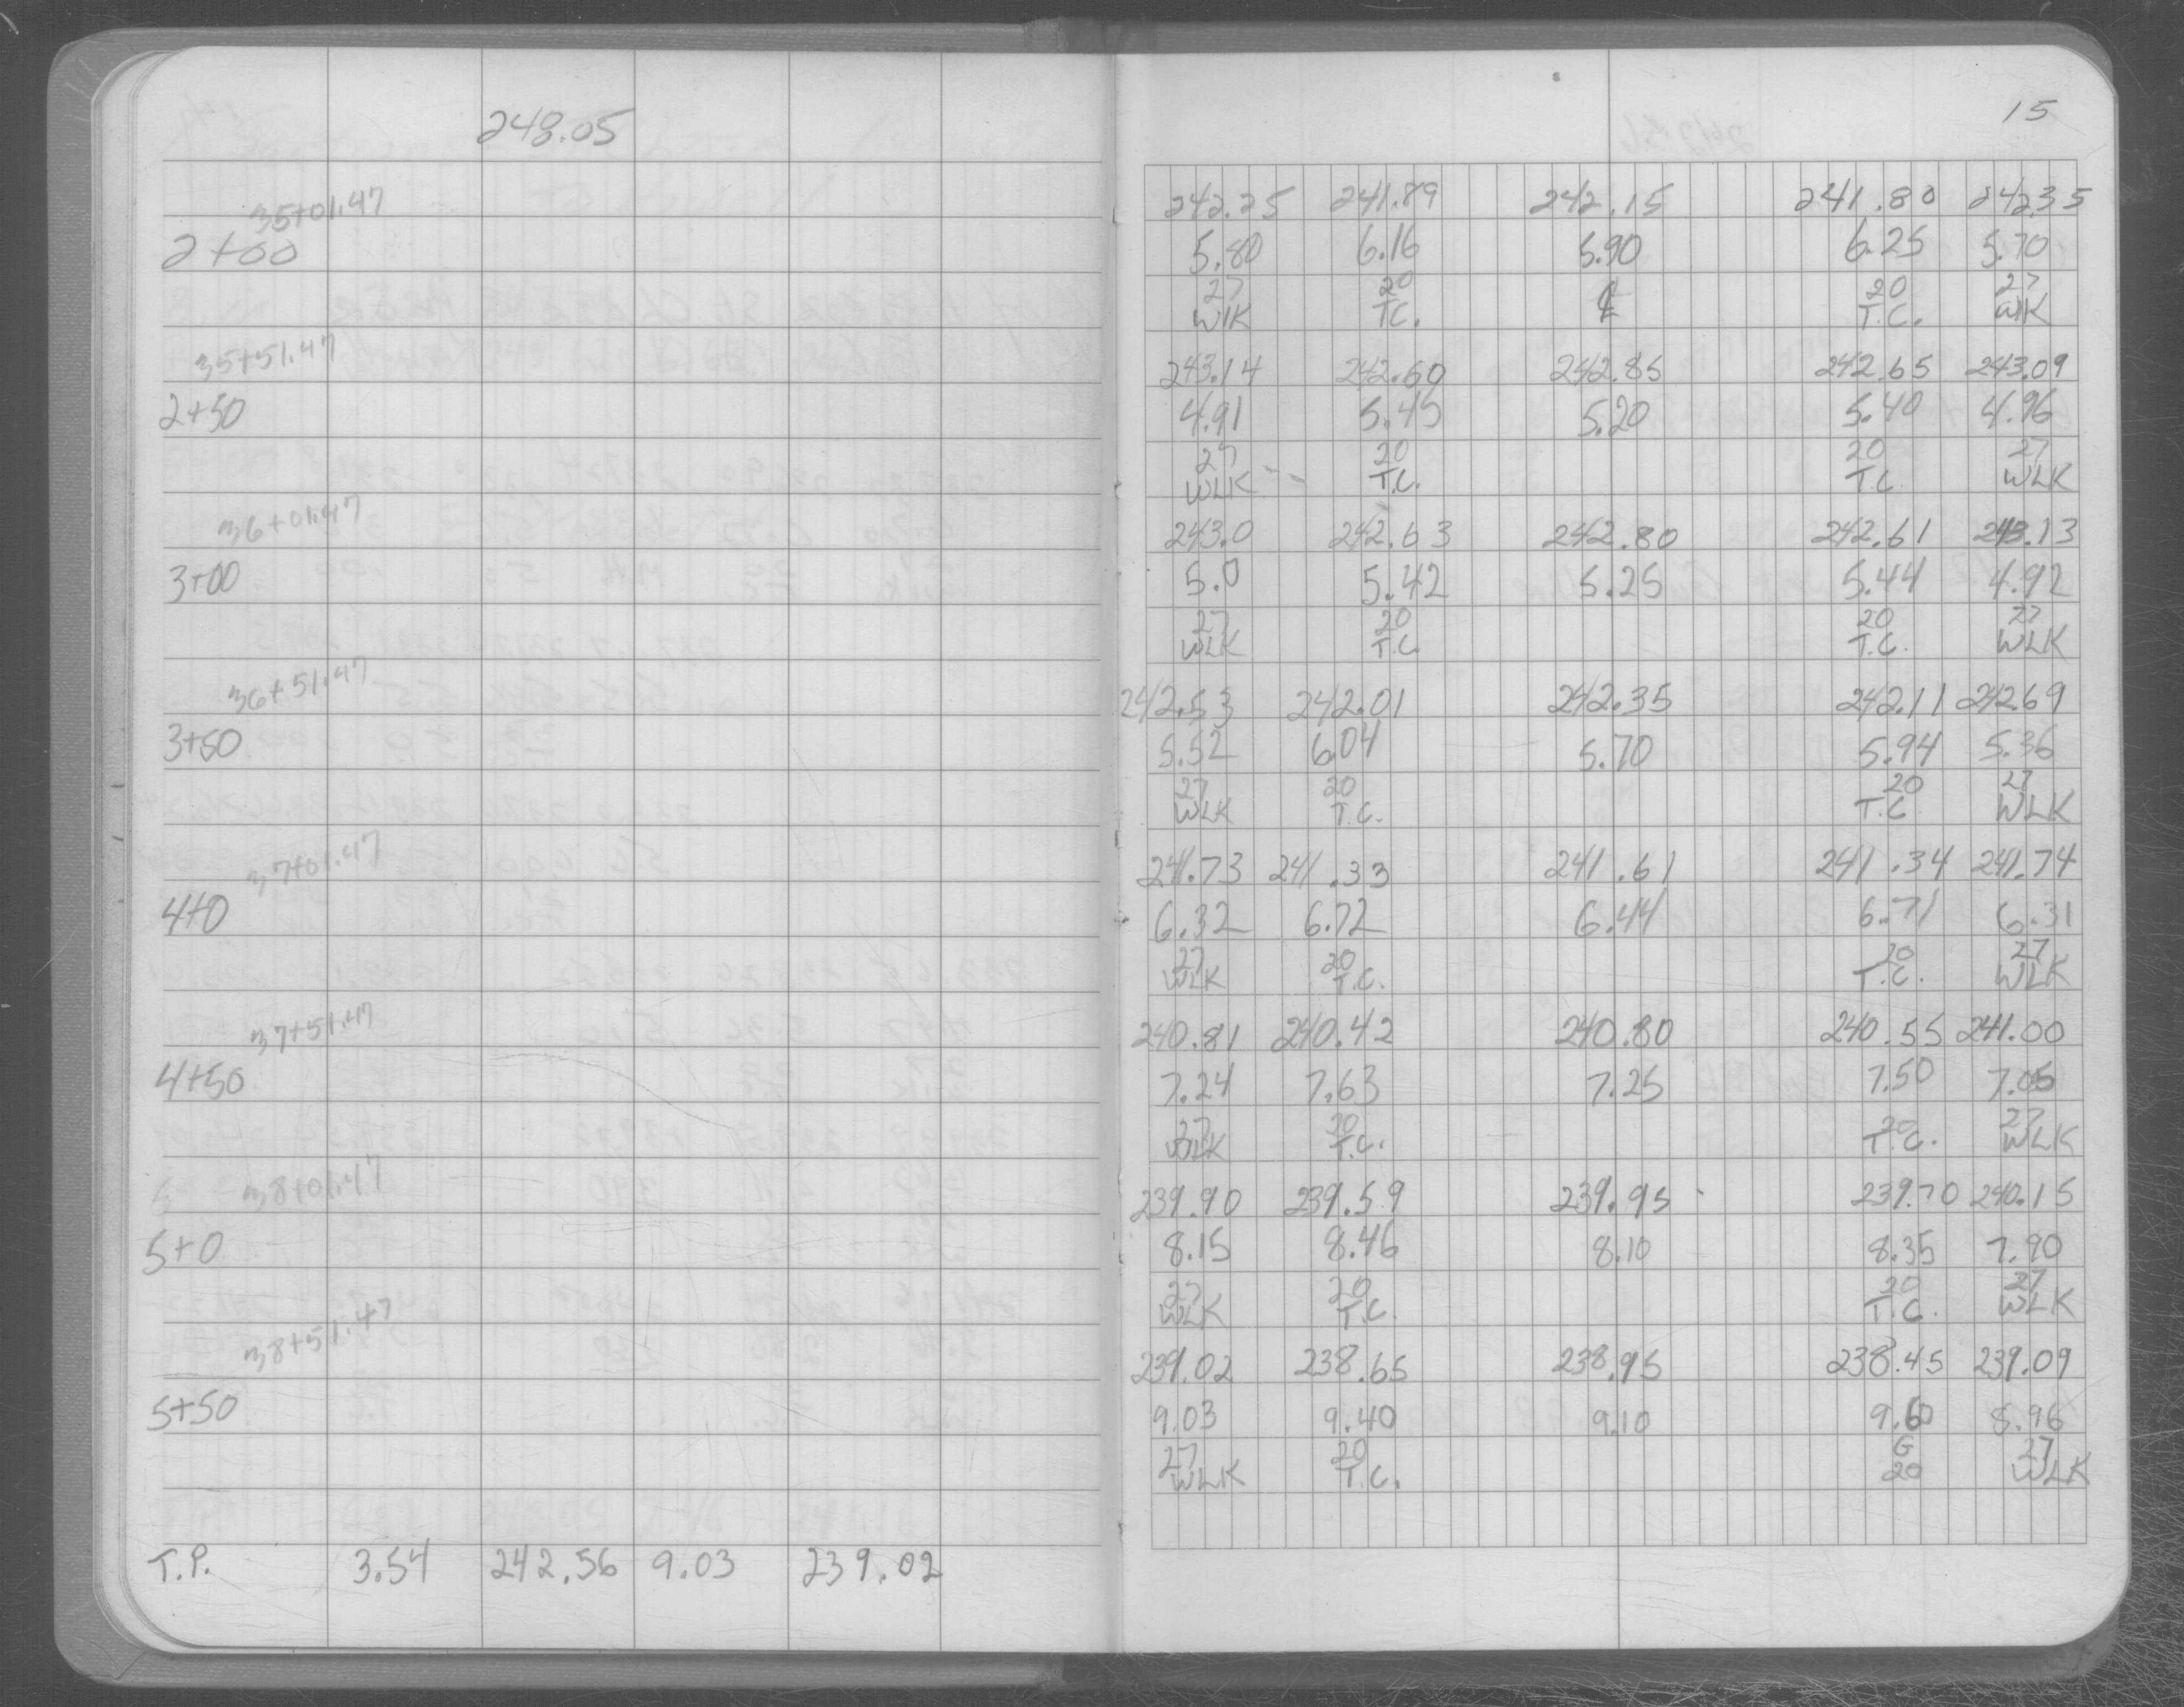 248.05
15
35+01.47
2+00
242.25 241.89 242.15 241.80 242.35
5.80 6.16 5.90 6.25 5.70
27 20 ℄ 20 27
WLK T.C. T.C. WLK
35+51.47
2+50
243.14 242.60 242.85 242.65 243.09
4.91 5.45 5.20 5.40 4.96
27 20 20 27
WLK T.C. T.C. WLK
36+01.47
3+00
243.0 242.63 242.80 242.61 243.13
5.0 5.42 5.25 5.44 4.92
27 20 20 27
WLK T.C. T.C. WLK
36+51.47
3+50
242.53 242.01 242.35 242.11 242.69
5.52 6.04 5.70 5.94 5.36
27 20 20 27
WLK T.C. T.C. WLK
37+01.47
4+0
241.73 241.33 241.61 241.34 241.74
6.32 6.72 6.44 6.71 6.31
27 20 20 27
WLK T.C. T.C. WLK
37+51.47
4+50
240.81 240.42 240.80 240.55 241.00
7.24 7.63 7.25 7.50 7.05
27 20 20 27
WLK T.C. T.C. WLK
38+01.47
5+0
239.90 239.59 239.95 239.70 240.15
8.15 8.46 8.10 8.35 7.90
27 20 20 27
WLK T.C. T.C. WLK
38+51.47
5+50
239.02 238.65 238.95 238.45 239.09
9.03 9.40 9.10 9.60 8.96
27 20 G 27
WLK T.C. 20 WLK
T.P. 3.54 242.56 9.03 239.02